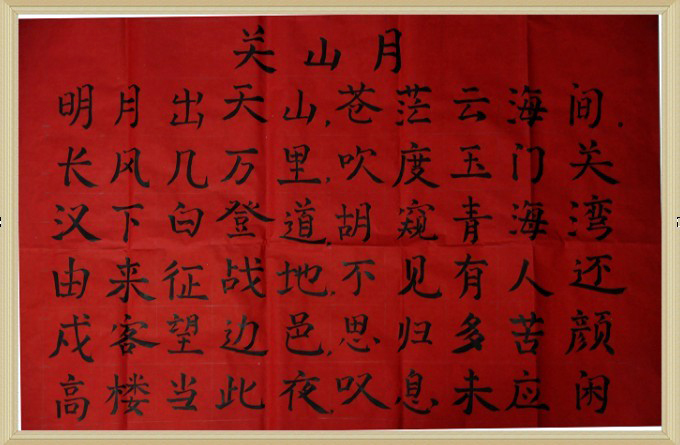 关山月
明月出天山,苍茫云海间.
长风几万里,吹度玉门关
汉下白登道,胡窥青海湾
由来征战地,不见有人还
戍客望边邑,思归多苦颜
高楼当此夜,叹息未应闲